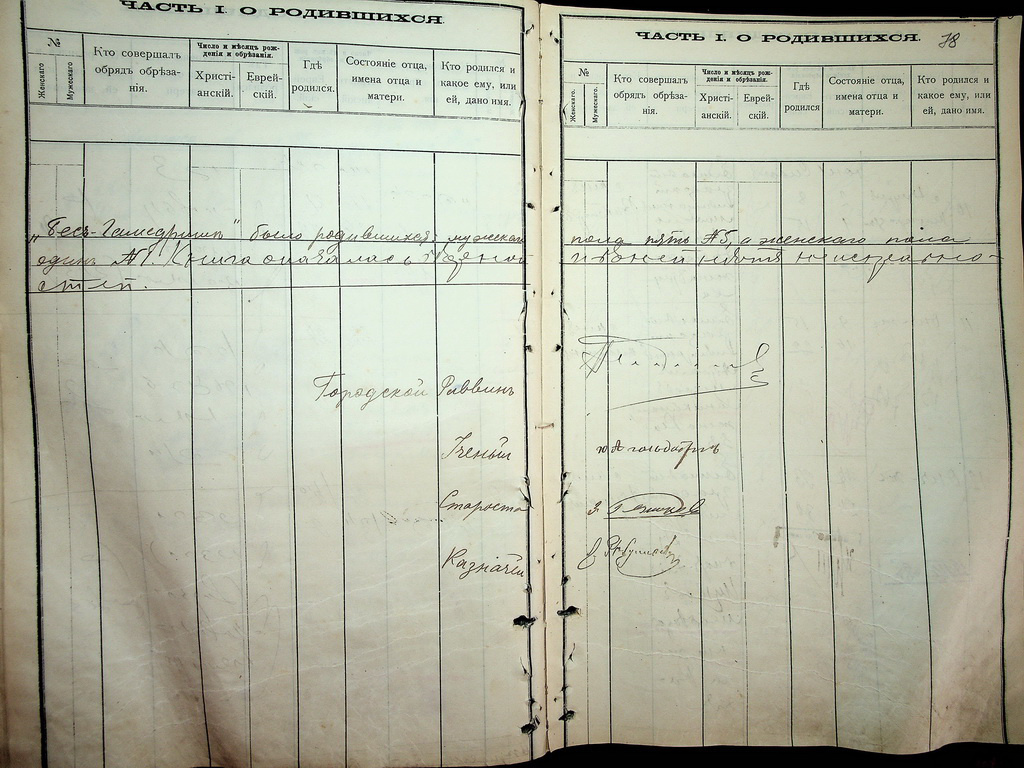 ЧАСТЬ I. О РОДИВШИХСЯ.
№
Женскаго
Мужескаго
Кто совершалъ
обрядъ обрѣза-
нія.
Число и мѣсяцъ рож-
денія и обрѣзанія.
Христі-
анскій.
Еврей-
скій.
Гдѣ
родился.
Состояніе отца,
имена отца и
матери.
Кто родился и
какое ему, или
ей, дано имя.
„Бесъ-Гамедришъ" было родившихся: мужскаго
одинъ №1. Книга оказалась
стей.
Городской Раввинъ
Ученый
Староста
Казначей
ЧАСТЬ I. О РОДИВШИХСЯ.
78
№
Женскаго.
Мужескаго.
Кто совершалъ
обрядъ обрѣза-
нія.
Число и мѣсяцъ рож-
денія и обрѣзанія.
Христі-
анскій.
Еврей-
скій.
Гдѣ
родился
Состояніе отца,
имена отца и
матери.
Кто родился и
какое ему, или
ей, дано имя.
пола пять №5, а женскаго пола
неисправно-